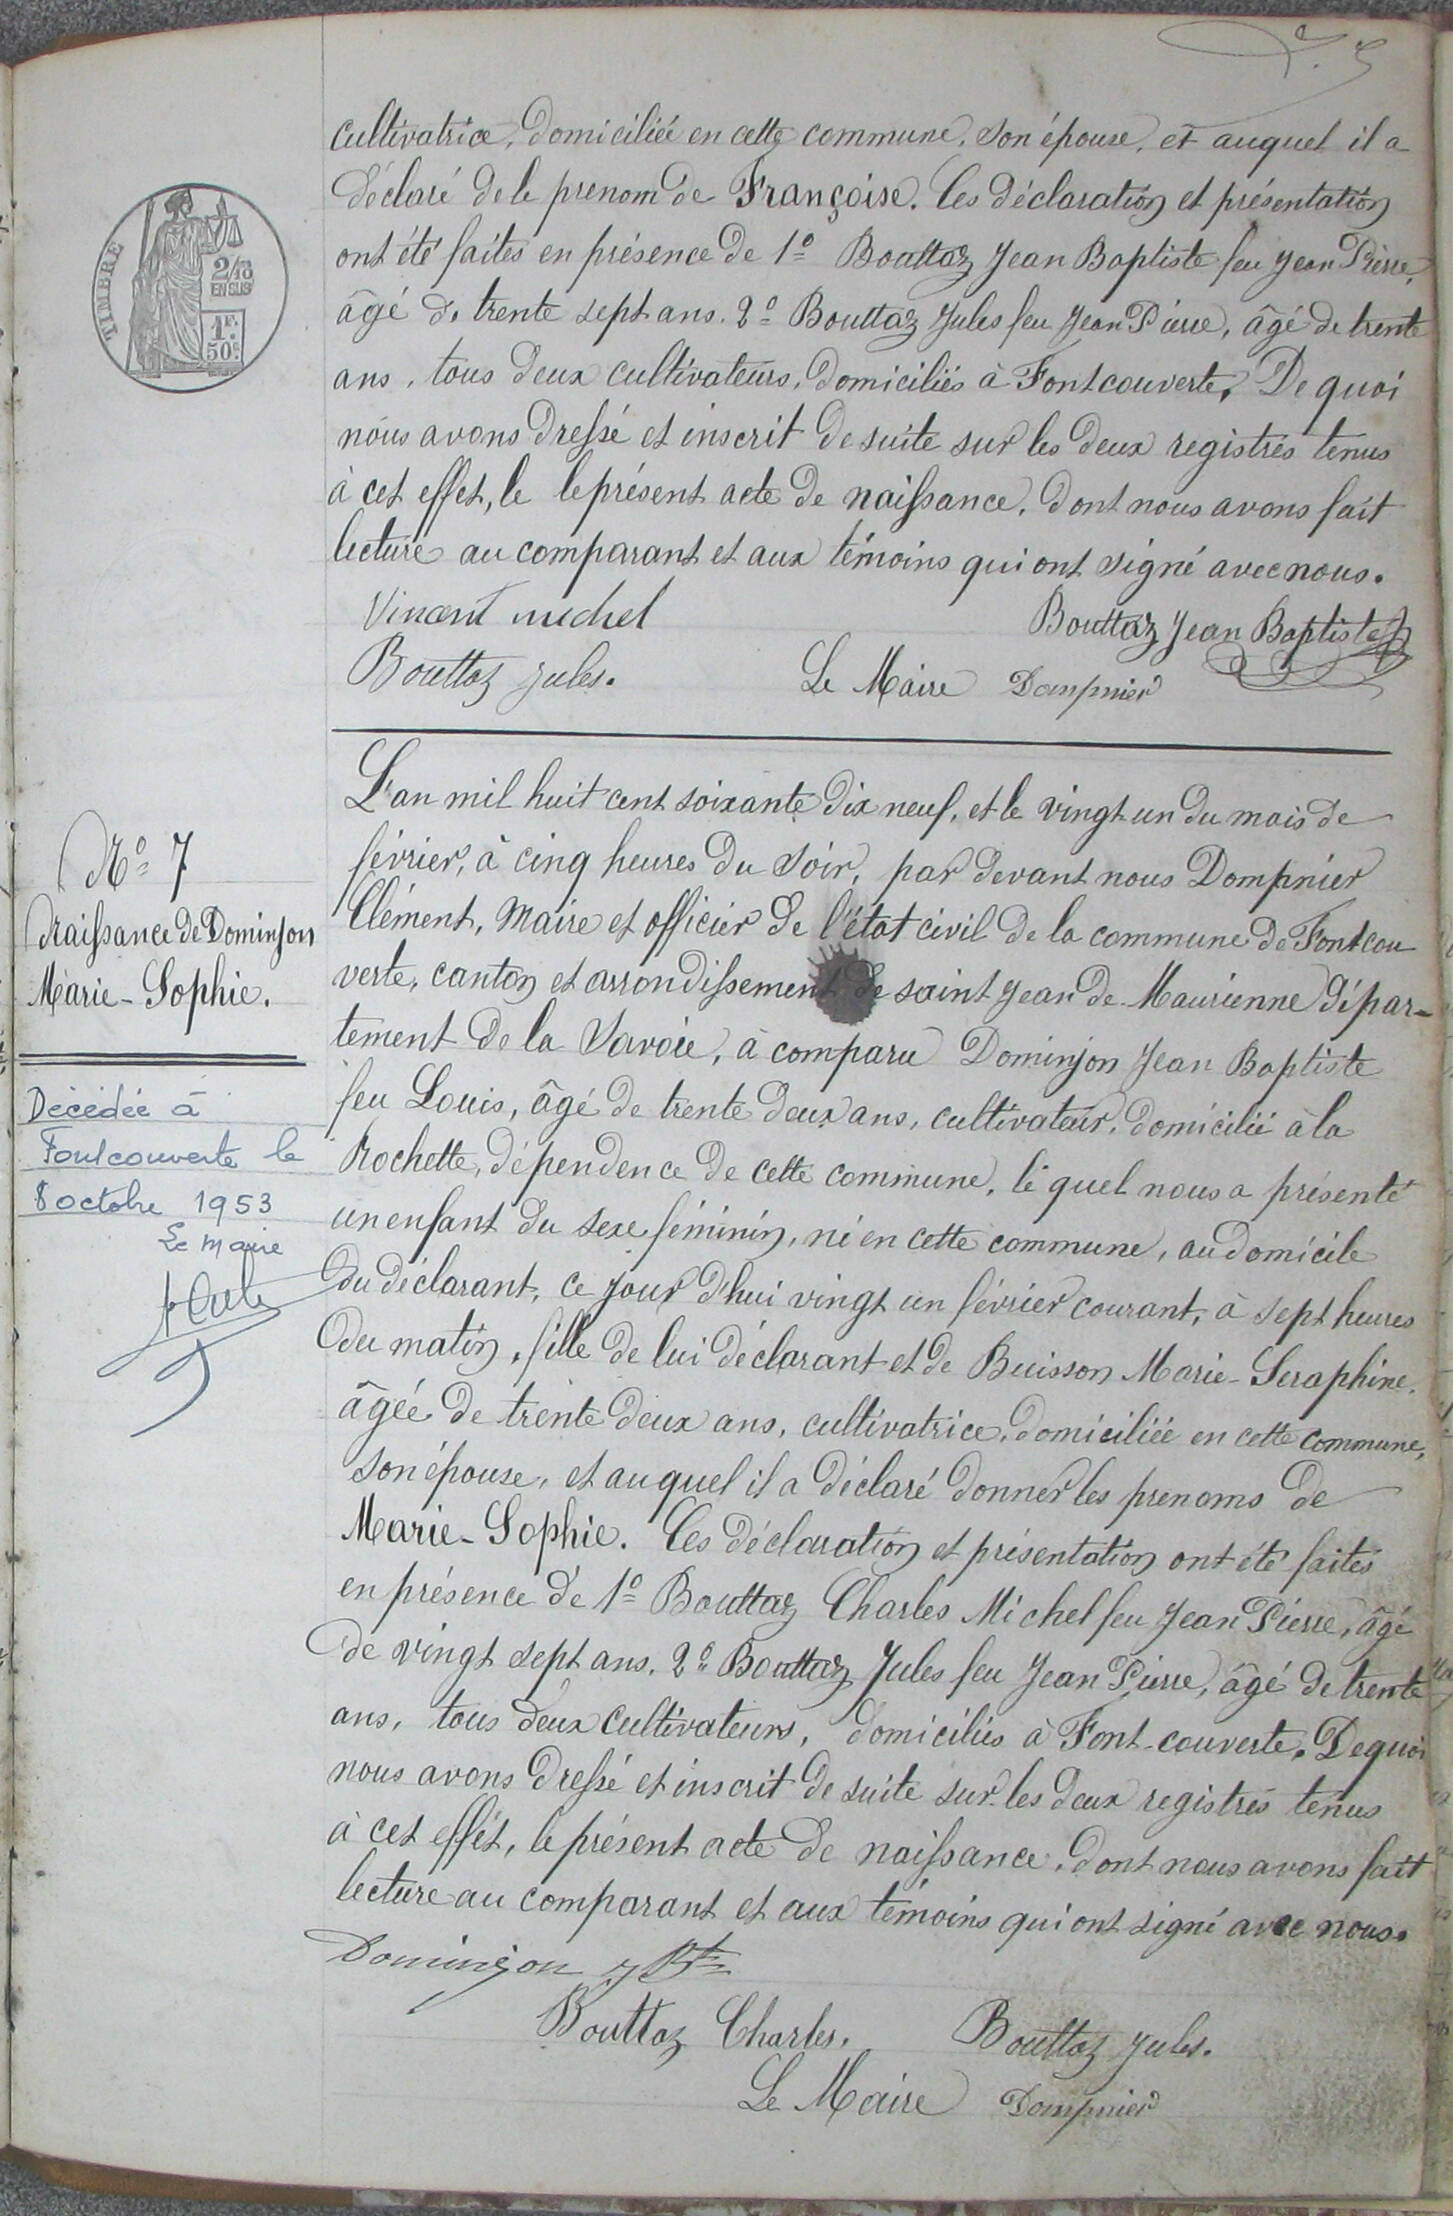 cultivatrice, domiciliée en cette commune, son épouse, et auquel il a
déclaré de le prenom de Françoise. Ces déclaration et présentation
ont été faites en présence de 1º Bouttaz Jean Baptiste feu Jean Pierre,
TIMBRE
2/10
EN SUS
1F.
50c.
âgé de trente sept ans. 2º Bouttaz Jules feu Jean Pierre, âgé de trente
ans, tous deux cultivateurs, domiciliés à Fontcouverte, De quoi
nous avons dressé et inscrit de suite sur les deux registres tenus
à cet effet, le le présent acte de naissance, dont nous avons fait
lecture au comparant et aux témoins qui ont signé avec nous.
Vincent michel
Bouttaz Jean Baptiste
Bouttaz Jules.
Le Maire Dompnier
Nº 7
Naissance de Dominjon
Marie-Sophie.
Décédée à
Fontcouverte le
8 octobre 1953
Le Maire
L'an mil huit cent soixante dix neuf, et le vingt un du mois de
février, à cinq heures du soir, par devant nous Dompnier
Clément, Maire et officier de l'état civil de la commune de Fontcou
verte, canton et arrondissement de saint Jean de Maurienne dépar-
tement de la Savoie, à comparu Dominjon Jean Baptiste
feu Louis, âgé de trente deux ans, cultivateur, domicilié à la
Rochette, dépendence de cette commune, le quel nous a présenté
un enfant du sexe féminin, né en cette commune, au domicile
du déclarant, ce jour d'hui vingt un février courant, à sept heures
du matin, fille de lui déclarant et de Buisson Marie-Seraphine,
âgée de trente deux ans, cultivatrice, domiciliée en cette commune,
son épouse, et au quel il a déclaré donner les prenoms de
Marie-Sophie. Ces déclaration et présentation ont été faites
en présence de 1º Bouttaz Charles Michel feu Jean Pierre, âgé
de vingt sept ans. 2º Bouttaz Jules feu Jean Pierre, âgé de trente
ans, tous deux cultivateurs, domiciliés à Font-couverte. De quoi
nous avons dressé et inscrit de suite sur les deux registres tenus
à cet effet, le présent acte de naissance, dont nous avons fait
lecture au comparant et aux témoins qui ont signé avec nous.
Dominjon J Bte
Bouttaz Charles. Bouttaz Jules.
Le Maire Dompnier